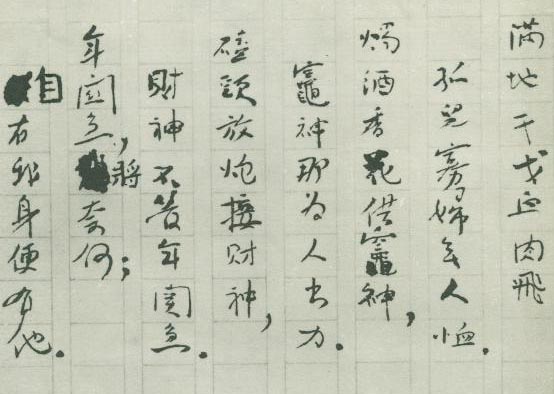 满地干戈血肉飛
孤兒寡婦无人恤。
燭酒香花供竈神,
竈神那為人出力。
磕頭放炮接財神,
財神不管年関急。
年関急,將奈何;
自有我身便有他。